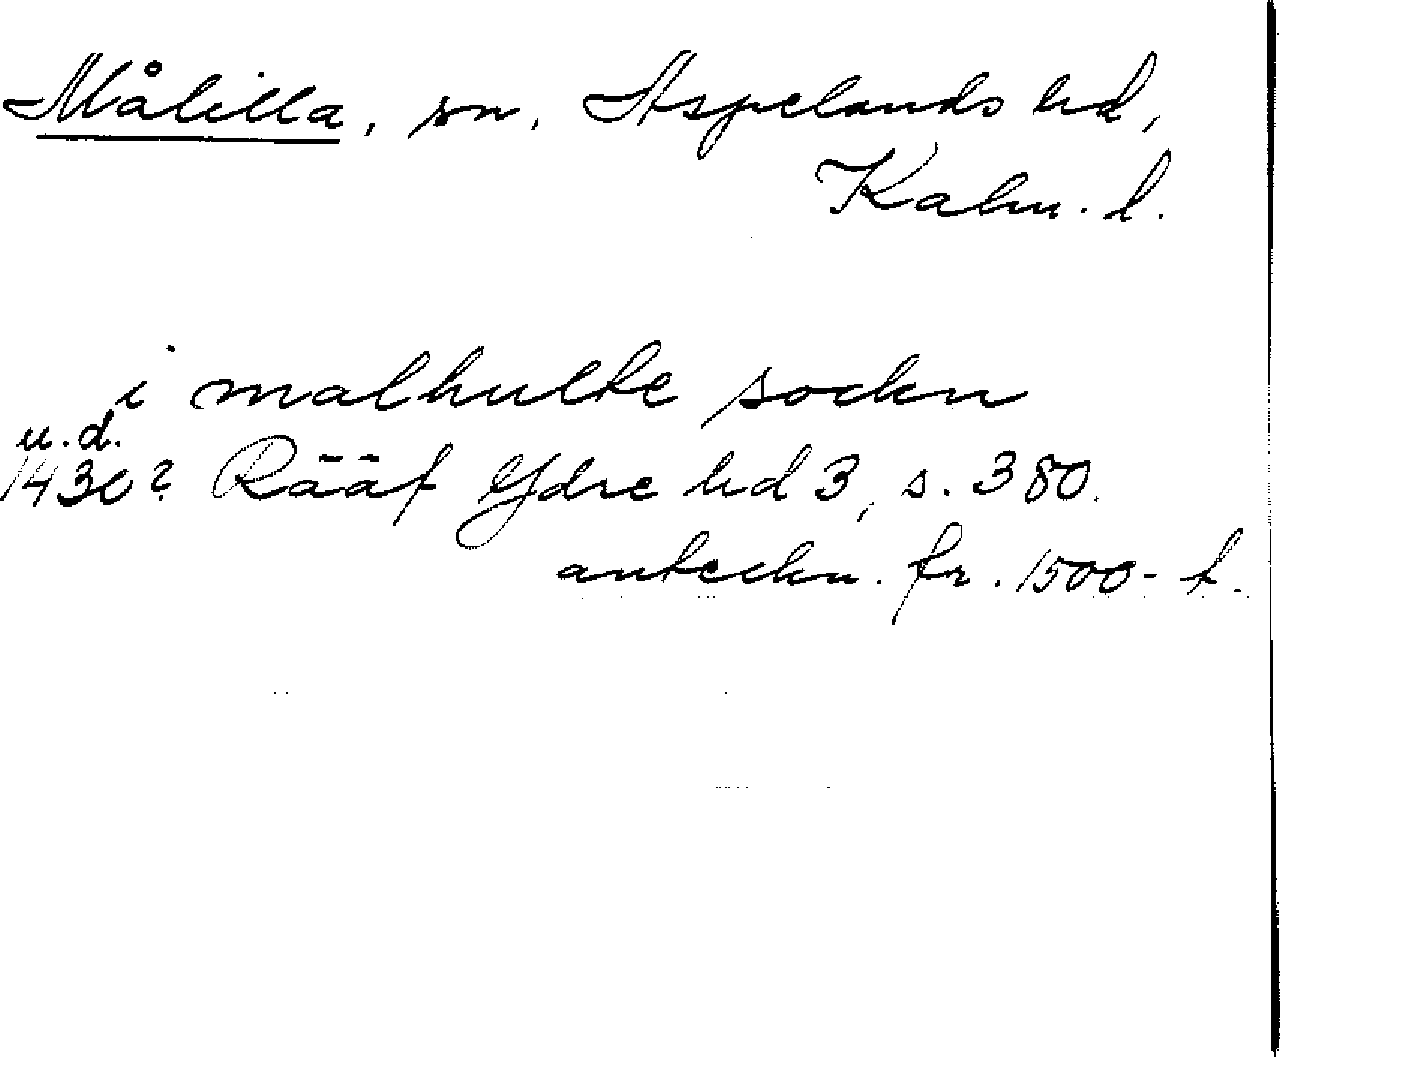 Målilla, sn, Aspelands hd,
Kalm. l.
i malhulte sockn
u.d.
1430? Rääf Ydre hd 3, s. 380.
anteckn. fr. 1500- t.